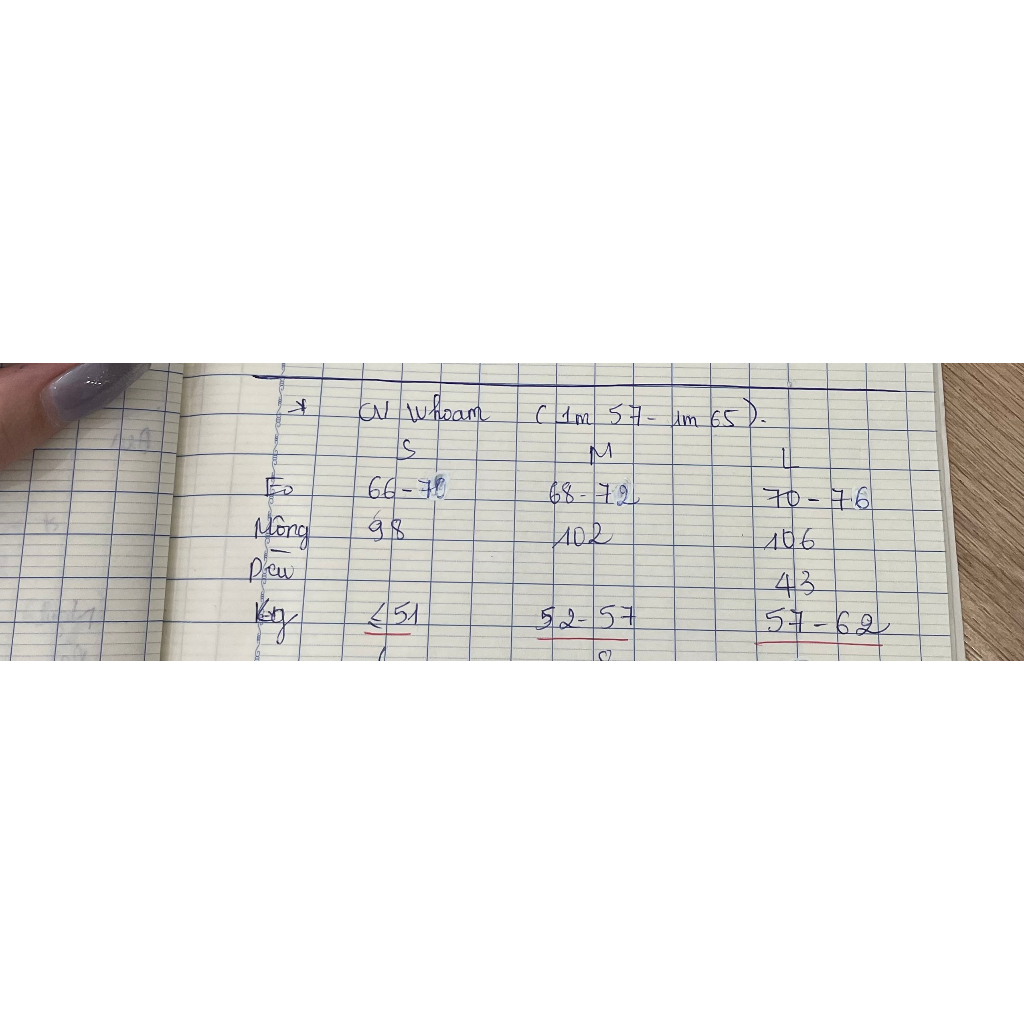 * CV Whoam (1m 57 - 1m 65).
S M L
Eo 66-70 68-72 70-76
Mông 98 102 106
43
Kg ≤51 52-57 57-62